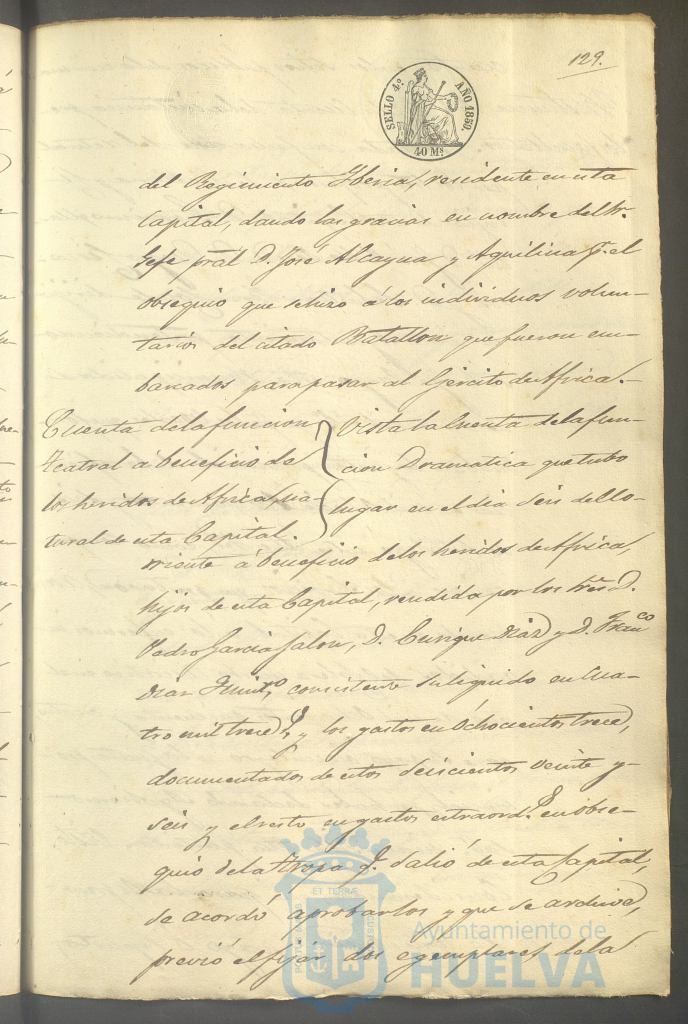 129.
SELLO 4º AÑO 1860.
40 Ms.
del Regimiento Iberia, residente en esta
Capital, dando las gracias en nombre del Sr.
Gefe pral D. José Alcayna y Aquilina pr. el
obsequio que se hizo á los individuos volun-
tarios del citado Batallon que fueron em-
barcados para pasar al Ejército de Africa.-
Cuenta de la funcion
teatral á beneficio de
los heridos de Africa, na-
tural de esta Capital.
Vista la Cuenta de la fun-
cion Dramatica que tubo
lugar en el dia seis del co-
rriente á beneficio de los heridos de Africa,
hijos de esta Capital, rendida por los Sres. D.
Pedro Garcia Jalon, D. Enrique Diaz y D. Franco
Diaz consistente su liquido en cua-
tro mil trece rs, y los gastos en Ochocientos trece,
documentados de estos seiscientos veinte y
seis y el resto en gastos extraords. en obse-
quio de la tropa qe. salió de esta Capital,
se acordó aprobarlos y que se archive,
previó el fijar dos egemplares de la
ET TERRÆ
PORTUS MARIS
CUSTODIA
Ayuntamiento de
HUELVA